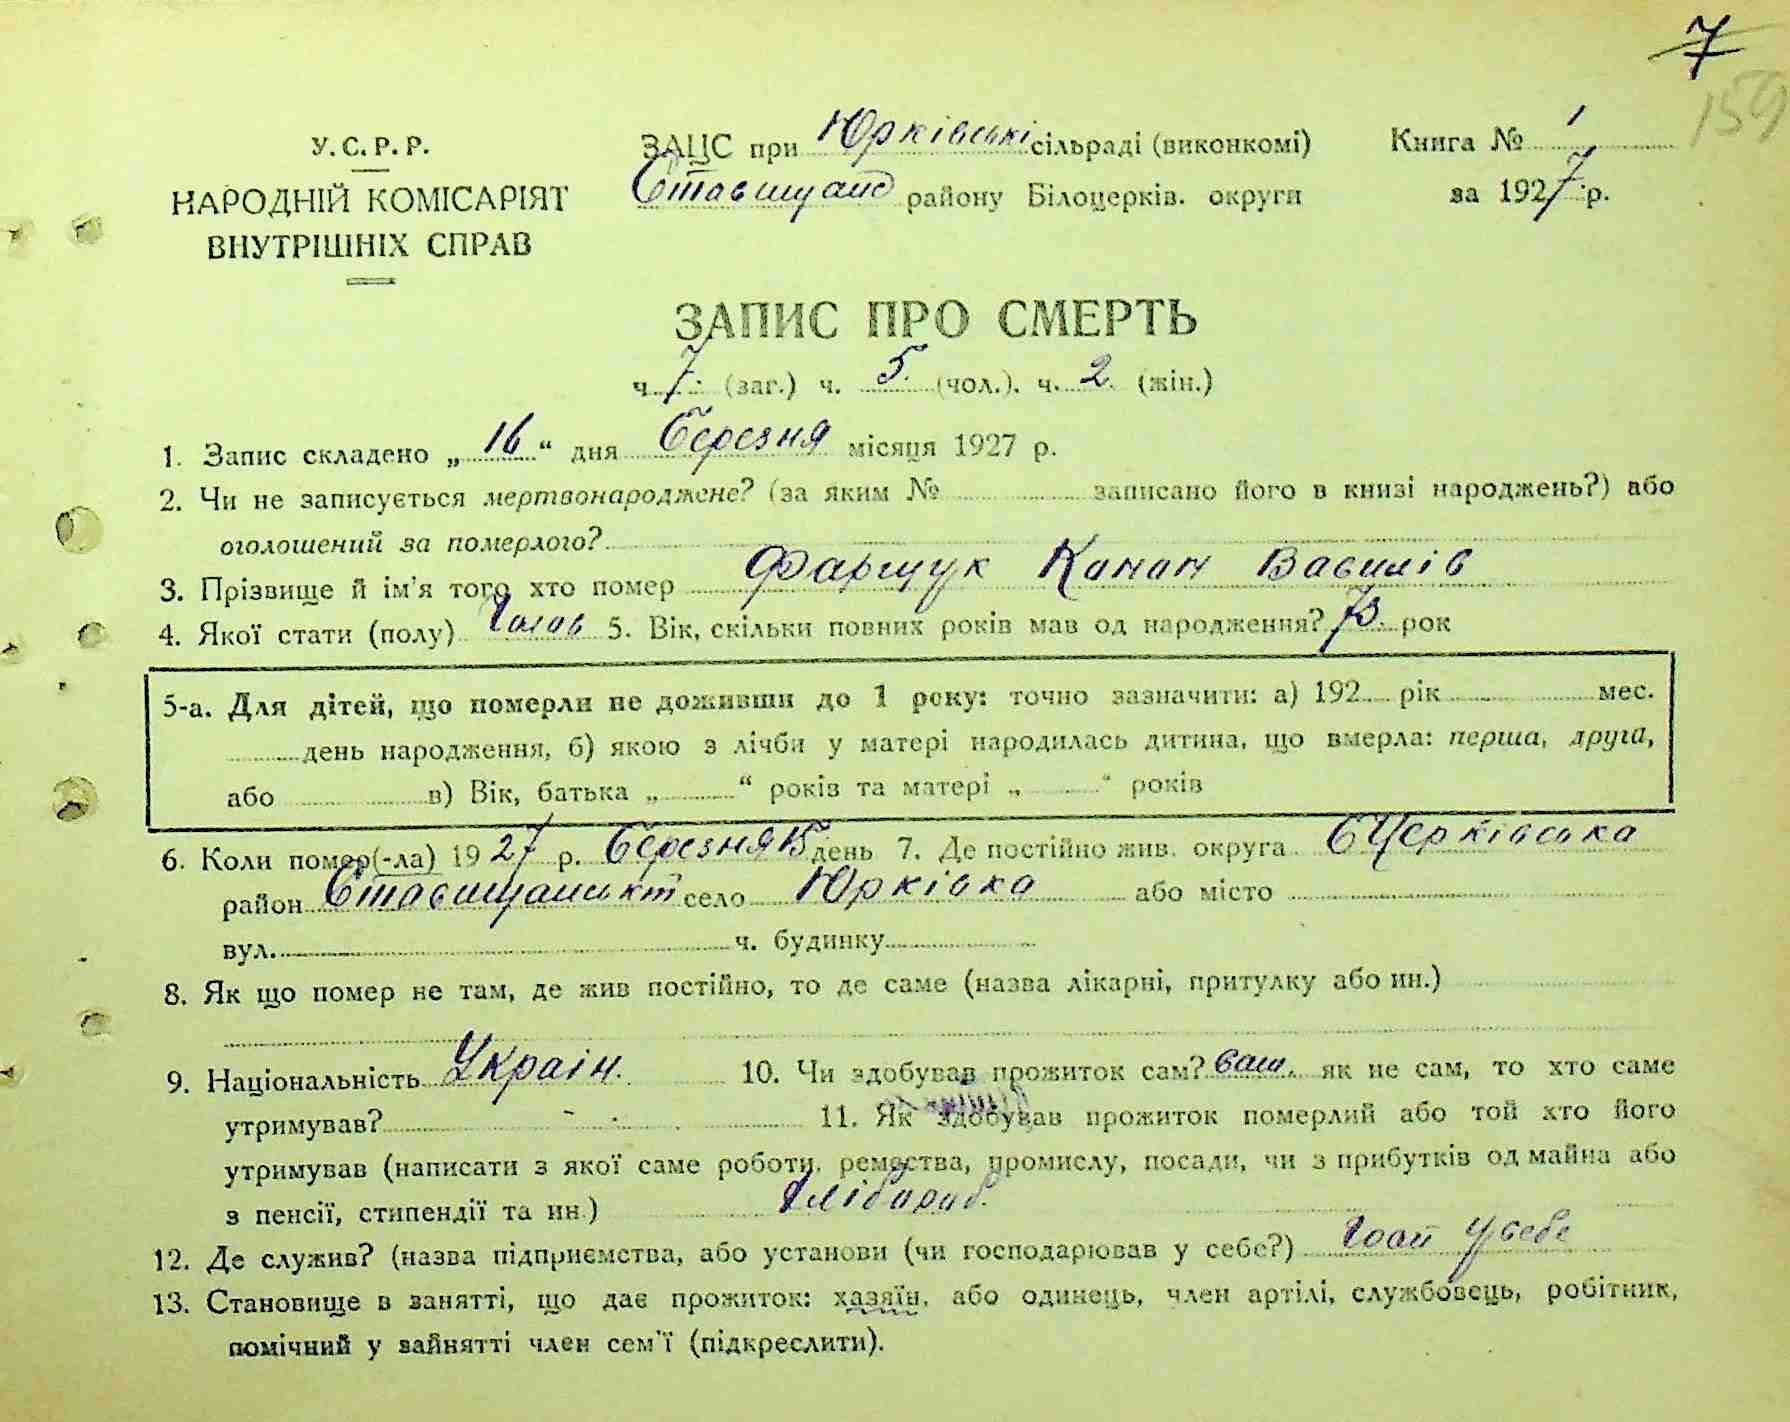 7
159
У.С.Р.Р.
НАРОДНІЙ КОМІСАРІЯТ
ВНУТРІШНІХ СПРАВ
ЗАЦС при Юрківські сільраді (виконкомі)
Ставищанс району Білоцерків. округи
Книга № 1
за 1927 р.
ЗАПИС ПРО СМЕРТЬ
ч. 7 (заг.) ч. 5. (чол.). ч. 2. (жін.)
1. Запис складено „ 16 “ дня Березня місяця 1927 р.
2. Чи не записується мертвонароджене? (за яким № записано його в книзі народжень?) або
оголошений за померлого?
3. Прізвище й ім'я того хто помер Фарщук Канон Василів
4. Якої стати (полу) Чолов 5. Вік, скільки повних років мав од народження? 73. рок
5-а. Для дітей, що померли не доживши до 1 року: точно зазначити: а) 192 рік мес.
день народження, б) якою з лічби у матері народилась дитина, що вмерла: перша, друга,
або в) Вік, батька „ “ років та матері „ “ років
6. Коли помер(-ла) 1927 р. Березня 15 день 7. Де постійно жив. округа БЦерківська
район село Юрківка або місто
вул. ч. будинку
8. Як що помер не там, де жив постійно, то де саме (назва лікарні, притулку або ин.)
9. Національність Україн. 10. Чи здобував прожиток сам? сам. як не сам, то хто саме
утримував? - 11. Як здобував прожиток померлий або той хто його
утримував (написати з якої саме роботи, ремества, промислу, посади, чи з прибутків од майна або
з пенсії, стипендії та ин.) Хлібароб.
12. Де служив? (назва підприємства, або установи (чи господарював у себе?) у себе
13. Становище в занятті, що дає прожиток: хазяїн, або одинець, член артілі, службовець, робітник,
помічний у зайнятті член сем'ї (підкреслити).